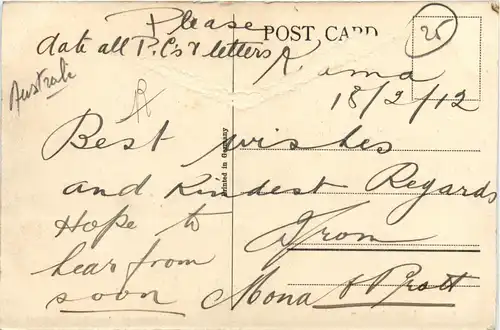 Please
date all P.C's & letters
POST CARD
25
Kiama
18/2/12
Australi
Best wishes
and Kindest Regards
Hope to
hear from
soon
From
Mona & Pratt
Printed in Germany